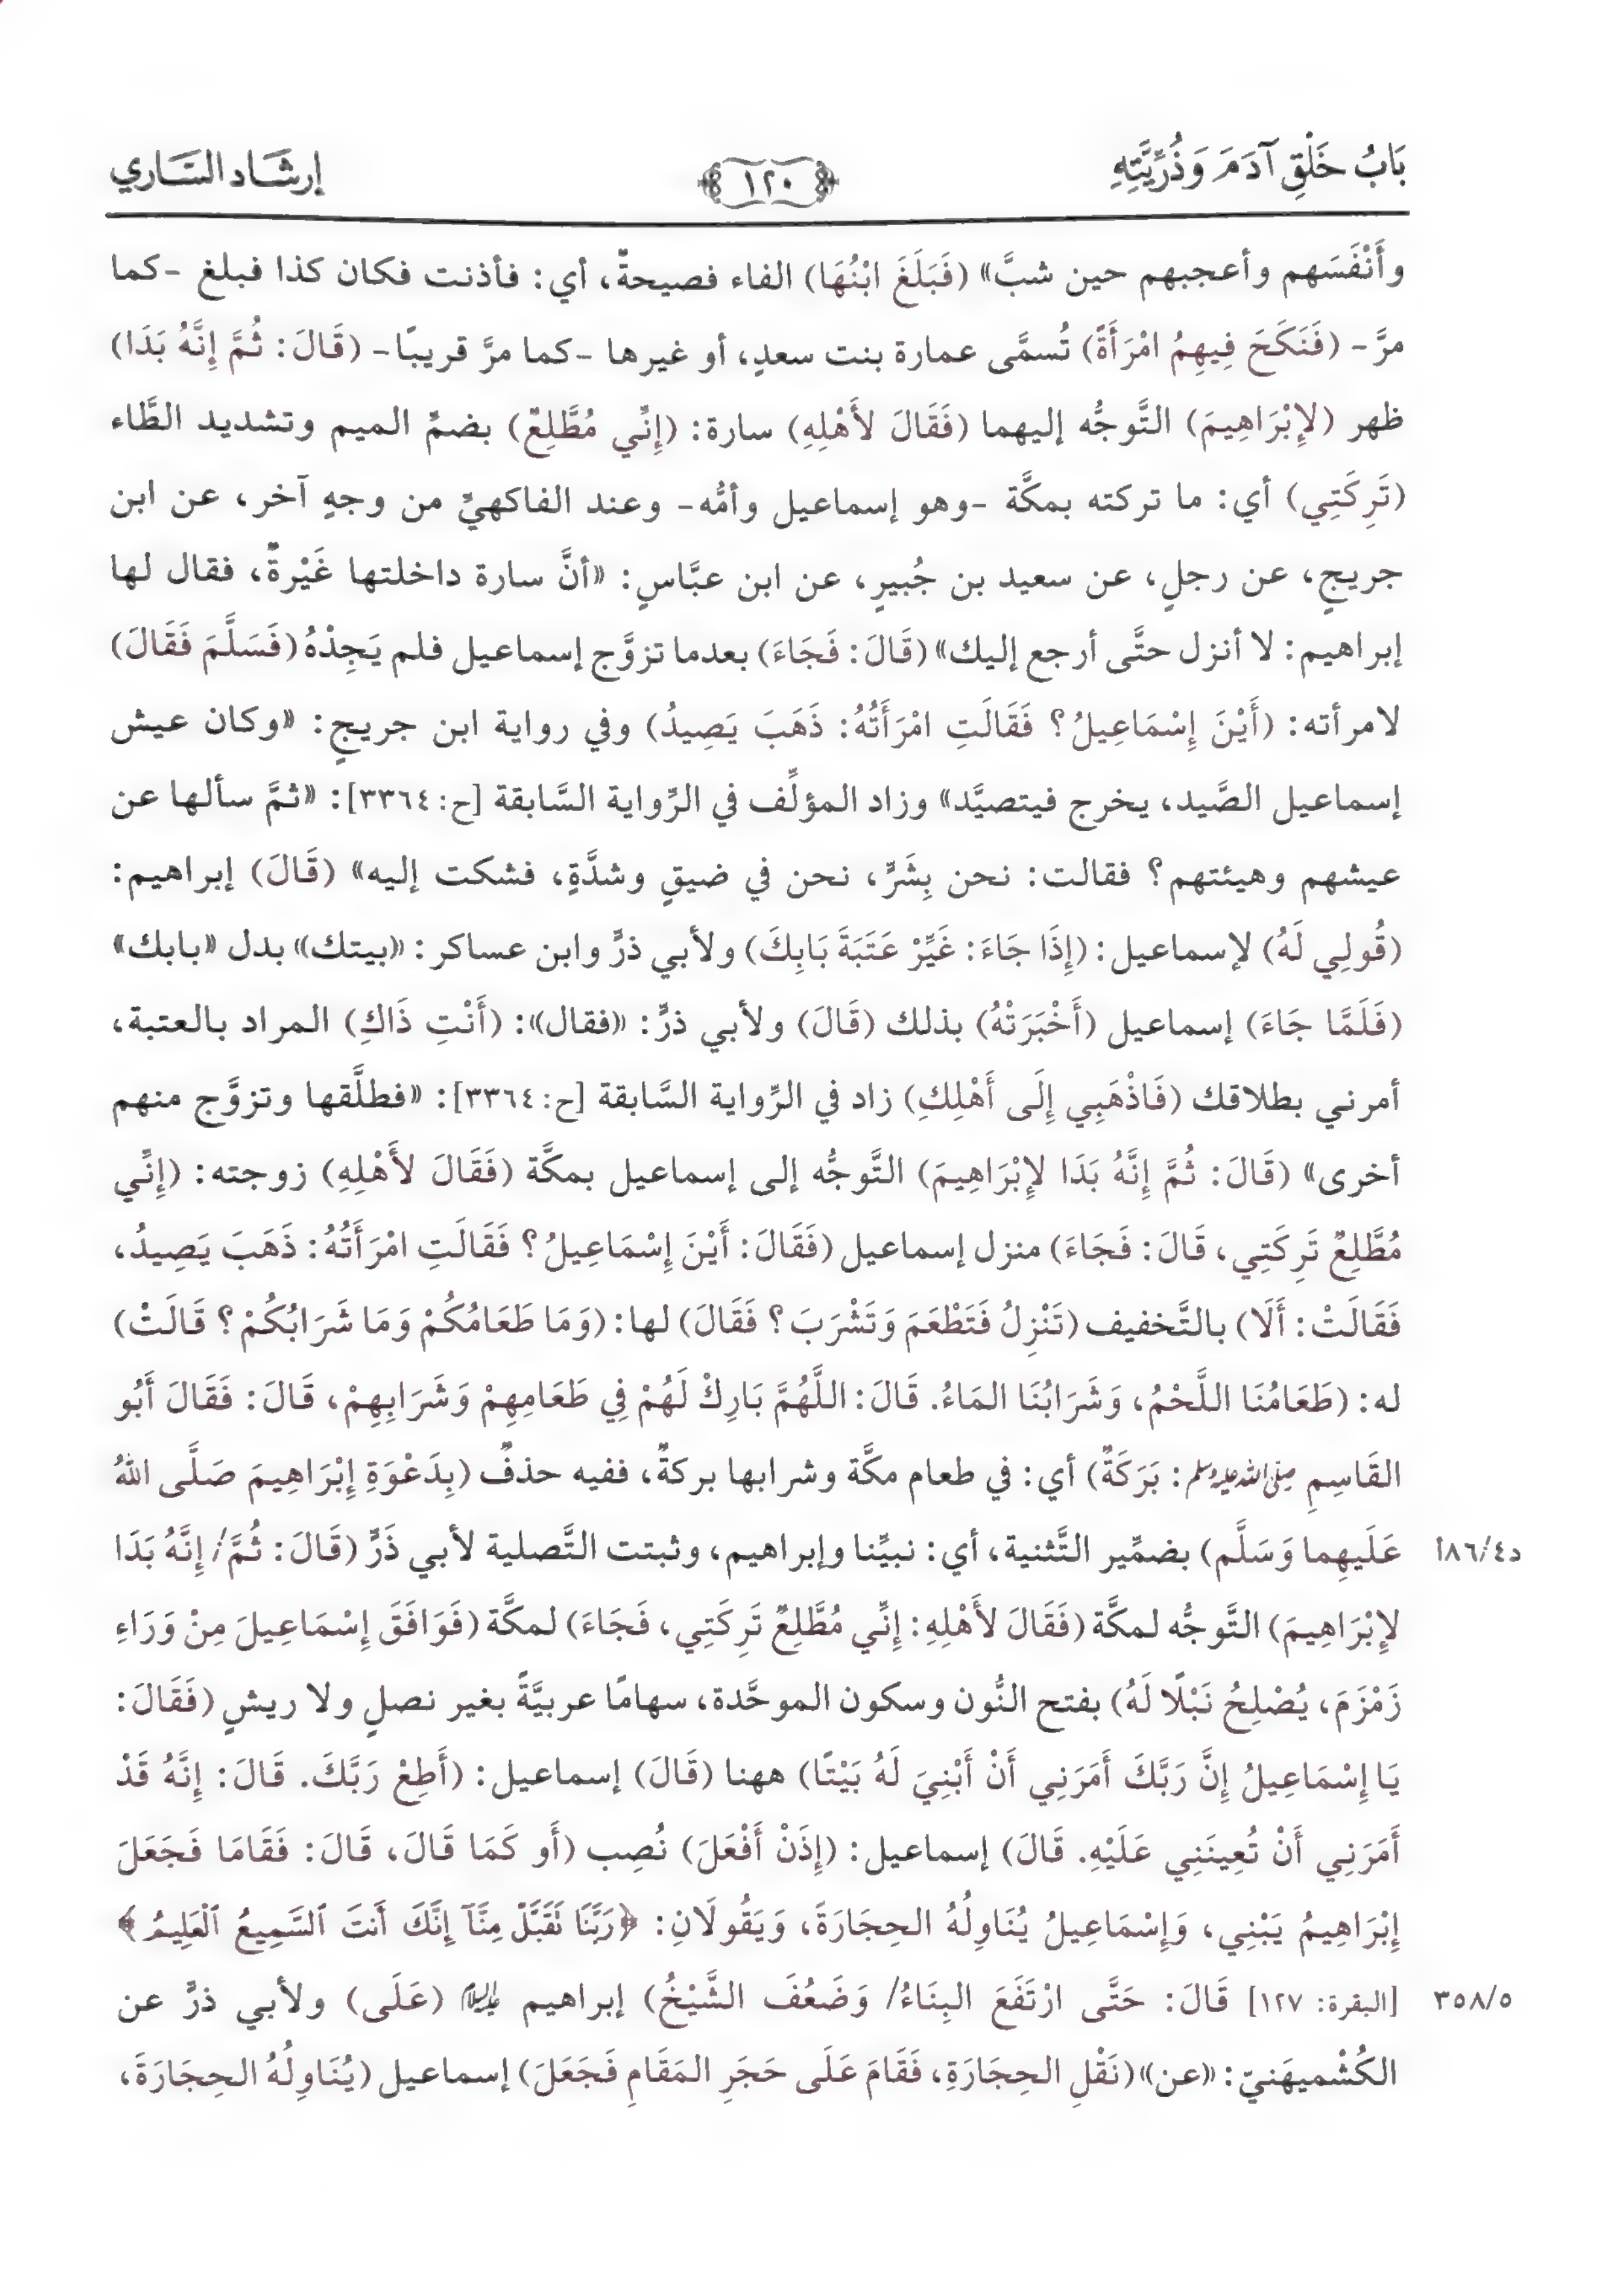 بَابُ خَلْقِ آدَمَ وَذُرِّيَّتِهِ ١٢٠ إرشَاد السَّاري
وأَنْفَسَهم وأعجبهم حين شبَّ» (فَبَلَغَ ابْنُهَا) الفاء فصيحةٌ، أي: فأذنت فكان كذا فبلغ -كما
مرَّ- (فَنَكَحَ فِيهِمُ امْرَأَةً) تُسمَّى عمارة بنت سعدٍ، أو غيرها -كما مرَّ قريبًا- (قَالَ: ثُمَّ إِنَّهُ بَدَا)
ظهر (لإِبْرَاهِيمَ) التَّوجُّه إليهما (فَقَالَ لأَهْلِهِ) سارة: (إِنِّي مُطَّلِعٌ) بضمِّ الميم وتشديد الطَّاء
(تَرِكَتِي) أي: ما تركته بمكَّة -وهو إسماعيل وأمُّه- وعند الفاكهيِّ من وجهٍ آخر، عن ابن
جريجٍ، عن رجلٍ، عن سعيد بن جُبيرٍ، عن ابن عبَّاسٍ: «أنَّ سارة داخلتها غَيْرةٌ، فقال لها
إبراهيم: لا أنزل حتَّى أرجع إليك» (قَالَ: فَجَاءَ) بعدما تزوَّج إسماعيل فلم يَجِدْهُ (فَسَلَّمَ فَقَالَ)
لامرأته: (أَيْنَ إِسْمَاعِيلُ؟ فَقَالَتِ امْرَأَتُهُ: ذَهَبَ يَصِيدُ) وفي رواية ابن جريجٍ: «وكان عيش
إسماعيل الصَّيد، يخرج فيتصيَّد» وزاد المؤلِّف في الرِّواية السَّابقة [ح: ٣٣٦٤]: «ثمَّ سألها عن
عيشهم وهيئتهم؟ فقالت: نحن بِشَرٍّ، نحن في ضيقٍ وشدَّةٍ، فشكت إليه» (قَالَ) إبراهيم:
(قُولِي لَهُ) لإسماعيل: (إِذَا جَاءَ: غَيِّرْ عَتَبَةَ بَابِكَ) ولأبي ذرٍّ وابن عساكر: «بيتك» بدل «بابك»
(فَلَمَّا جَاءَ) إسماعيل (أَخْبَرَتْهُ) بذلك (قَالَ) ولأبي ذرٍّ: «فقال»: (أَنْتِ ذَاكِ) المراد بالعتبة،
أمرني بطلاقك (فَاذْهَبِي إِلَى أَهْلِكِ) زاد في الرِّواية السَّابقة [ح: ٣٣٦٤]: «فطلَّقها وتزوَّج منهم
أخرى» (قَالَ: ثُمَّ إِنَّهُ بَدَا لإِبْرَاهِيمَ) التَّوجُّه إلى إسماعيل بمكَّة (فَقَالَ لأَهْلِهِ) زوجته: (إِنِّي
مُطَّلِعٌ تَرِكَتِي، قَالَ: فَجَاءَ) منزل إسماعيل (فَقَالَ: أَيْنَ إِسْمَاعِيلُ؟ فَقَالَتِ امْرَأَتُهُ: ذَهَبَ يَصِيدُ،
فَقَالَتْ: أَلَا) بالتَّخفيف (تَنْزِلُ فَتَطْعَمَ وَتَشْرَبَ؟ فَقَالَ) لها: (وَمَا طَعَامُكُمْ وَمَا شَرَابُكُمْ؟ قَالَتْ)
له: (طَعَامُنَا اللَّحْمُ، وَشَرَابُنَا المَاءُ. قَالَ: اللَّهُمَّ بَارِكْ لَهُمْ فِي طَعَامِهِمْ وَشَرَابِهِمْ، قَالَ: فَقَالَ أَبُو
القَاسِمِ صلى الله عليه وسلم: بَرَكَةٌ) أي: في طعام مكَّة وشرابها بركةٌ، ففيه حذفٌ (بِدَعْوَةِ إِبْرَاهِيمَ صَلَّى اللهُ
عَلَيهِما وَسَلَّم) بضمِّير التَّثنية، أي: نبيِّنا وإبراهيم، وثبتت التَّصلية لأبي ذَرٍّ (قَالَ: ثُمَّ/ إِنَّهُ بَدَا د٨٦/٤أ
لإِبْرَاهِيمَ) التَّوجُّه لمكَّة (فَقَالَ لأَهْلِهِ: إِنِّي مُطَّلِعٌ تَرِكَتِي، فَجَاءَ) لمكَّة (فَوَافَقَ إِسْمَاعِيلَ مِنْ وَرَاءِ
زَمْزَمَ، يُصْلِحُ نَبْلًا لَهُ) بفتح النُّون وسكون الموحَّدة، سهامًا عربيَّةً بغير نصلٍ ولا ريشٍ (فَقَالَ:
يَا إِسْمَاعِيلُ إِنَّ رَبَّكَ أَمَرَنِي أَنْ أَبْنِيَ لَهُ بَيْتًا) ههنا (قَالَ) إسماعيل: (أَطِعْ رَبَّكَ. قَالَ: إِنَّهُ قَدْ
أَمَرَنِي أَنْ تُعِينَنِي عَلَيْهِ. قَالَ) إسماعيل: (إِذَنْ أَفْعَلَ) نُصِب (أَو كَمَا قَالَ، قَالَ: فَقَامَا فَجَعَلَ
إِبْرَاهِيمُ يَبْنِي، وَإِسْمَاعِيلُ يُنَاوِلُهُ الحِجَارَةَ، وَيَقُولَانِ: ﴿رَبَّنَا تَقَبَّلْ مِنَّآ إِنَّكَ أَنتَ ٱلسَّمِيعُ ٱلْعَلِيمُ﴾
[البقرة: ١٢٧] قَالَ: حَتَّى ارْتَفَعَ البِنَاءُ/ وَضَعُفَ الشَّيْخُ) إبراهيم عليه السلام (عَلَى) ولأبي ذرٍّ عن ٣٥٨/٥
الكُشْميهَنيّ: «عن» (نَقْلِ الحِجَارَةِ، فَقَامَ عَلَى حَجَرِ المَقَامِ فَجَعَلَ) إسماعيل (يُنَاوِلُهُ الحِجَارَةَ،